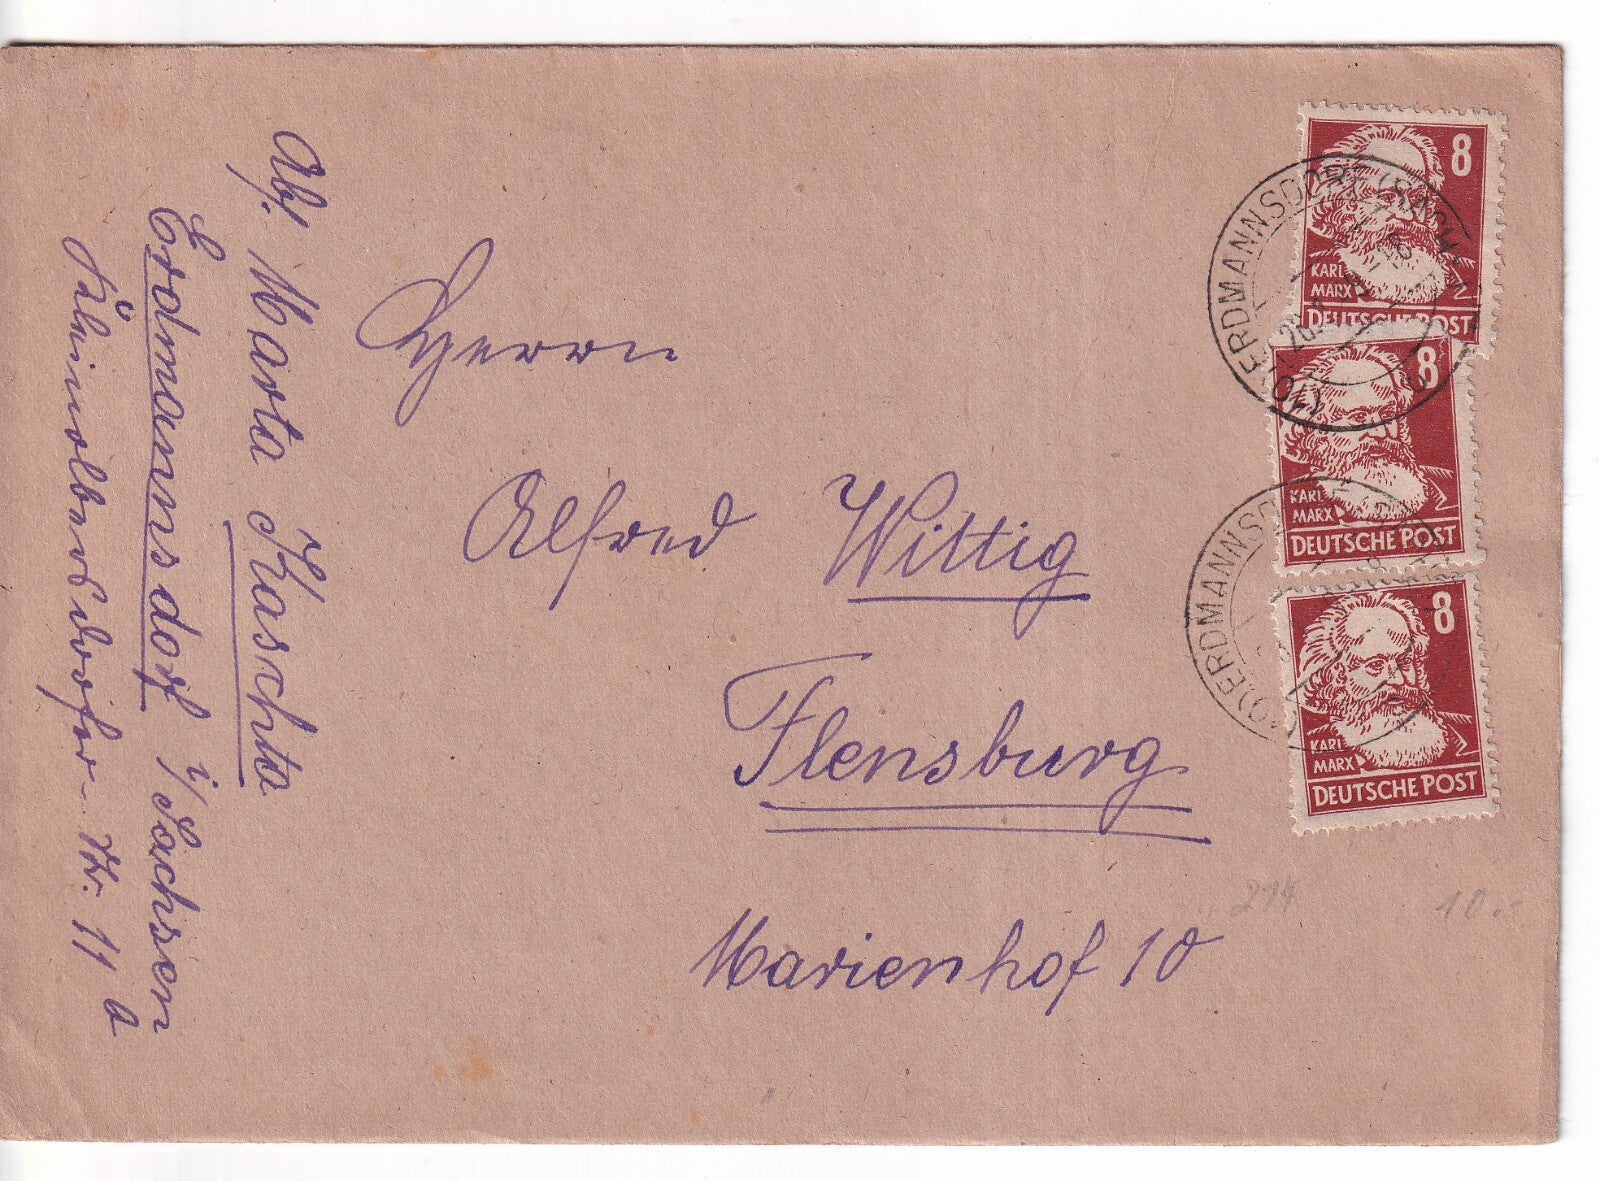 Herrn
Alfred Wittig
Flensburg
Marienhof 10
Abs. Marta Kaschta
Erdmannsdorf i/Sachsen
Kleinolbersdorfer- Str. 11 b
8
KARL
MARX
DEUTSCHE POST
8
KARL
MARX
DEUTSCHE POST
8
KARL
MARX
DEUTSCHE POST
(10) ERDMANNSDORF (SACHS)
(10) ERDMANNSD
214
10.-